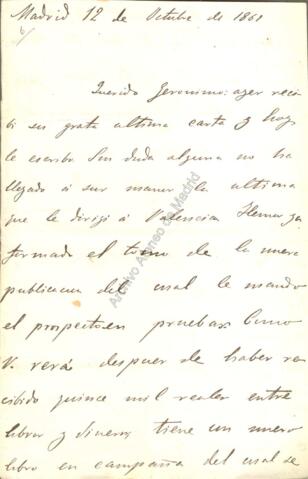 Madrid 12 de Octubre de 1861
Querido Geronimo: ayer reci
bi su grata ultima carta y hoy
le escribo Sin duda alguna no ha
llegado á sus manos la ultima
que le dirigi á Valencia Hemos ya
formado el tomo de la nueva
publicacion del cual le mando
el prospecto en pruebas. Como
V. verá despues de haber re
cibido quince mil reales entre
libros y dinero, tiene un nuevo
libro en campaña del cual se
Archivo Ateneo de Madrid